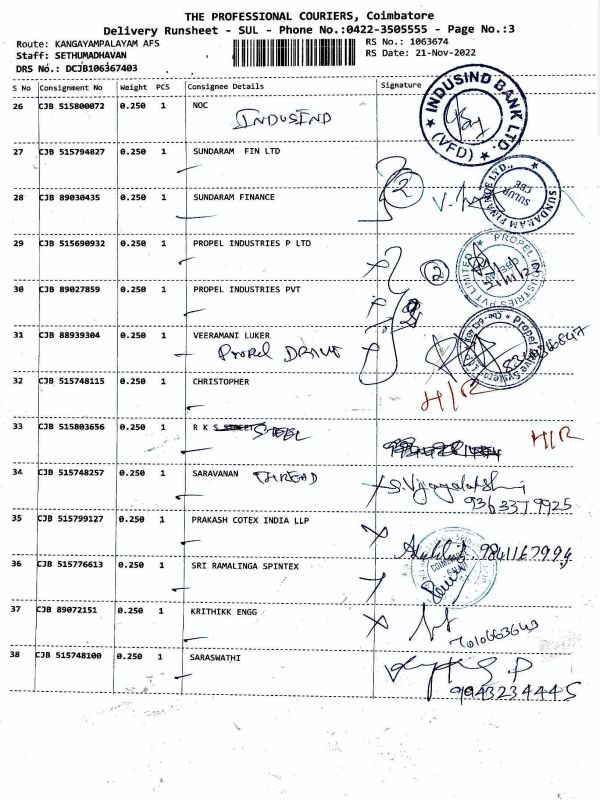 THE PROFESSIONAL COURIERS, Coimbatore
Delivery Runsheet - SUL - Phone No.:0422-3505555 - Page No.:3
Route: KANGAYAMPALAYAM AFS RS No.: 1063674
Staff: SETHUMADHAVAN RS Date: 21-Nov-2022
DRS No.: DCJB106367403
S No Consignment No Weight PCS Consignee Details Signature
26 CJB 515800072 0.250 1 NOC
INDUSIND
INDUSIND BANK LTD.
(VFD)
27 CJB 515794827 0.250 1 SUNDARAM FIN LTD
2
SUNDARAM FINANCE LTD.,
SULUR
CBE
28 CJB 89030435 0.250 1 SUNDARAM FINANCE
29 CJB 515690932 0.250 1 PROPEL INDUSTRIES P LTD
2
PROPEL INDUSTRIES PVT LIMITED
30 CJB 89027859 0.250 1 PROPEL INDUSTRIES PVT
31 CJB 88939304 0.250 1 VEERAMANI LUKER
Propel DRIVE
32 CJB 515748115 0.250 1 CHRISTOPHER
H/R
33 CJB 515803656 0.250 1 R K S STREET STEEL
H/R
34 CJB 515748257 0.250 1 SARAVANAN THREAD
S.Vijayalakshmi
9363379925
35 CJB 515799127 0.250 1 PRAKASH COTEX INDIA LLP
36 CJB 515776613 0.250 1 SRI RAMALINGA SPINTEX
37 CJB 89072151 0.250 1 KRITHIKK ENGG
7010663643
38 CJB 515748100 0.250 1 SARASWATHI
S.P
9943234445